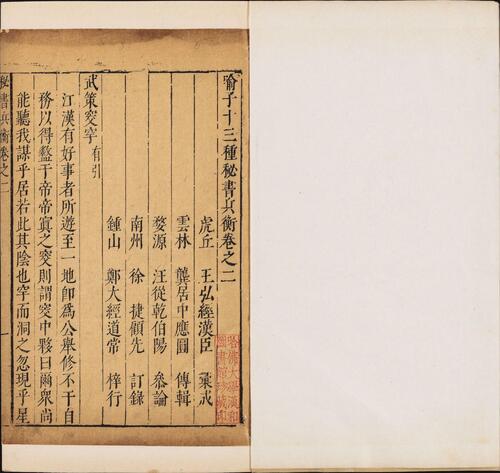 喻子十三種秘書兵衡卷之二
虎丘 王弘經漢臣 彙戎
雲林 龔居中應圓 傳輯
婺源 汪從乾伯陽 叅論
南州 徐 捷顧先 訂錄
鍾山 鄭大經道常 梓行
武策窔穾 有引
江漢有好事者所遊至一地卽爲公舉修不干自
務以得盤于帝帝寘之窔則謂窔中夥曰爾衆尚
能聽我謀乎居若此其陰也穾而洞之忽現乎星
秘書兵衡卷之二
一
哈佛大學漢和
圖書館珍藏印